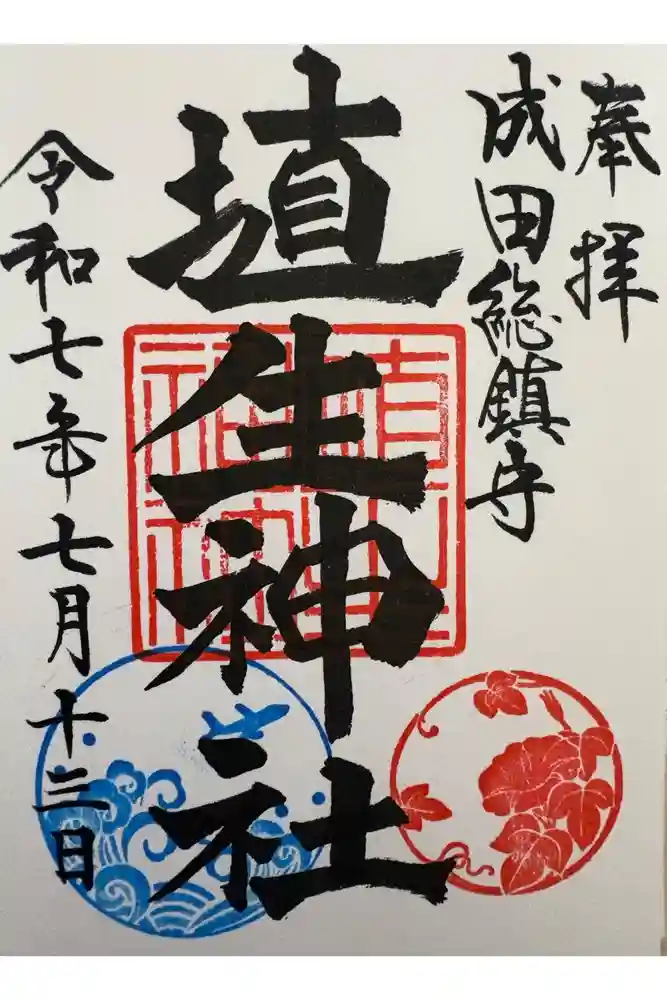 奉拝
成田総鎮守
埴生神社
令和七年七月十三日